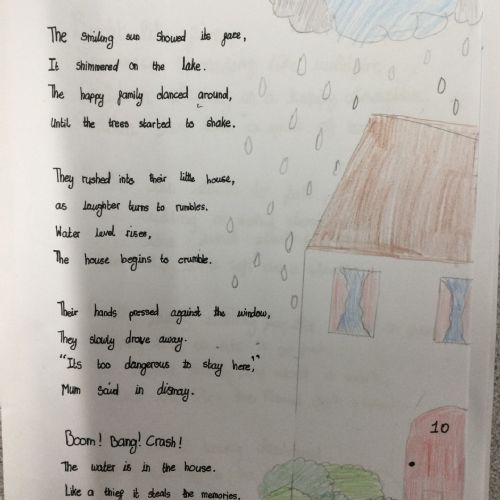 The smiling sun showed its face,
It shimmered on the lake.
The happy family danced around,
Until the trees started to shake.
They rushed into their little house,
as laughter turns to rumbles.
Water level rises,
The house begins to crumble.
Their hands pressed against the window,
They slowly drove away.
"Its too dangerous to stay here,"
Mum said in dismay.
Boom! Bang! Crash!
The water is in the house.
Like a thief it steals the memories,
10